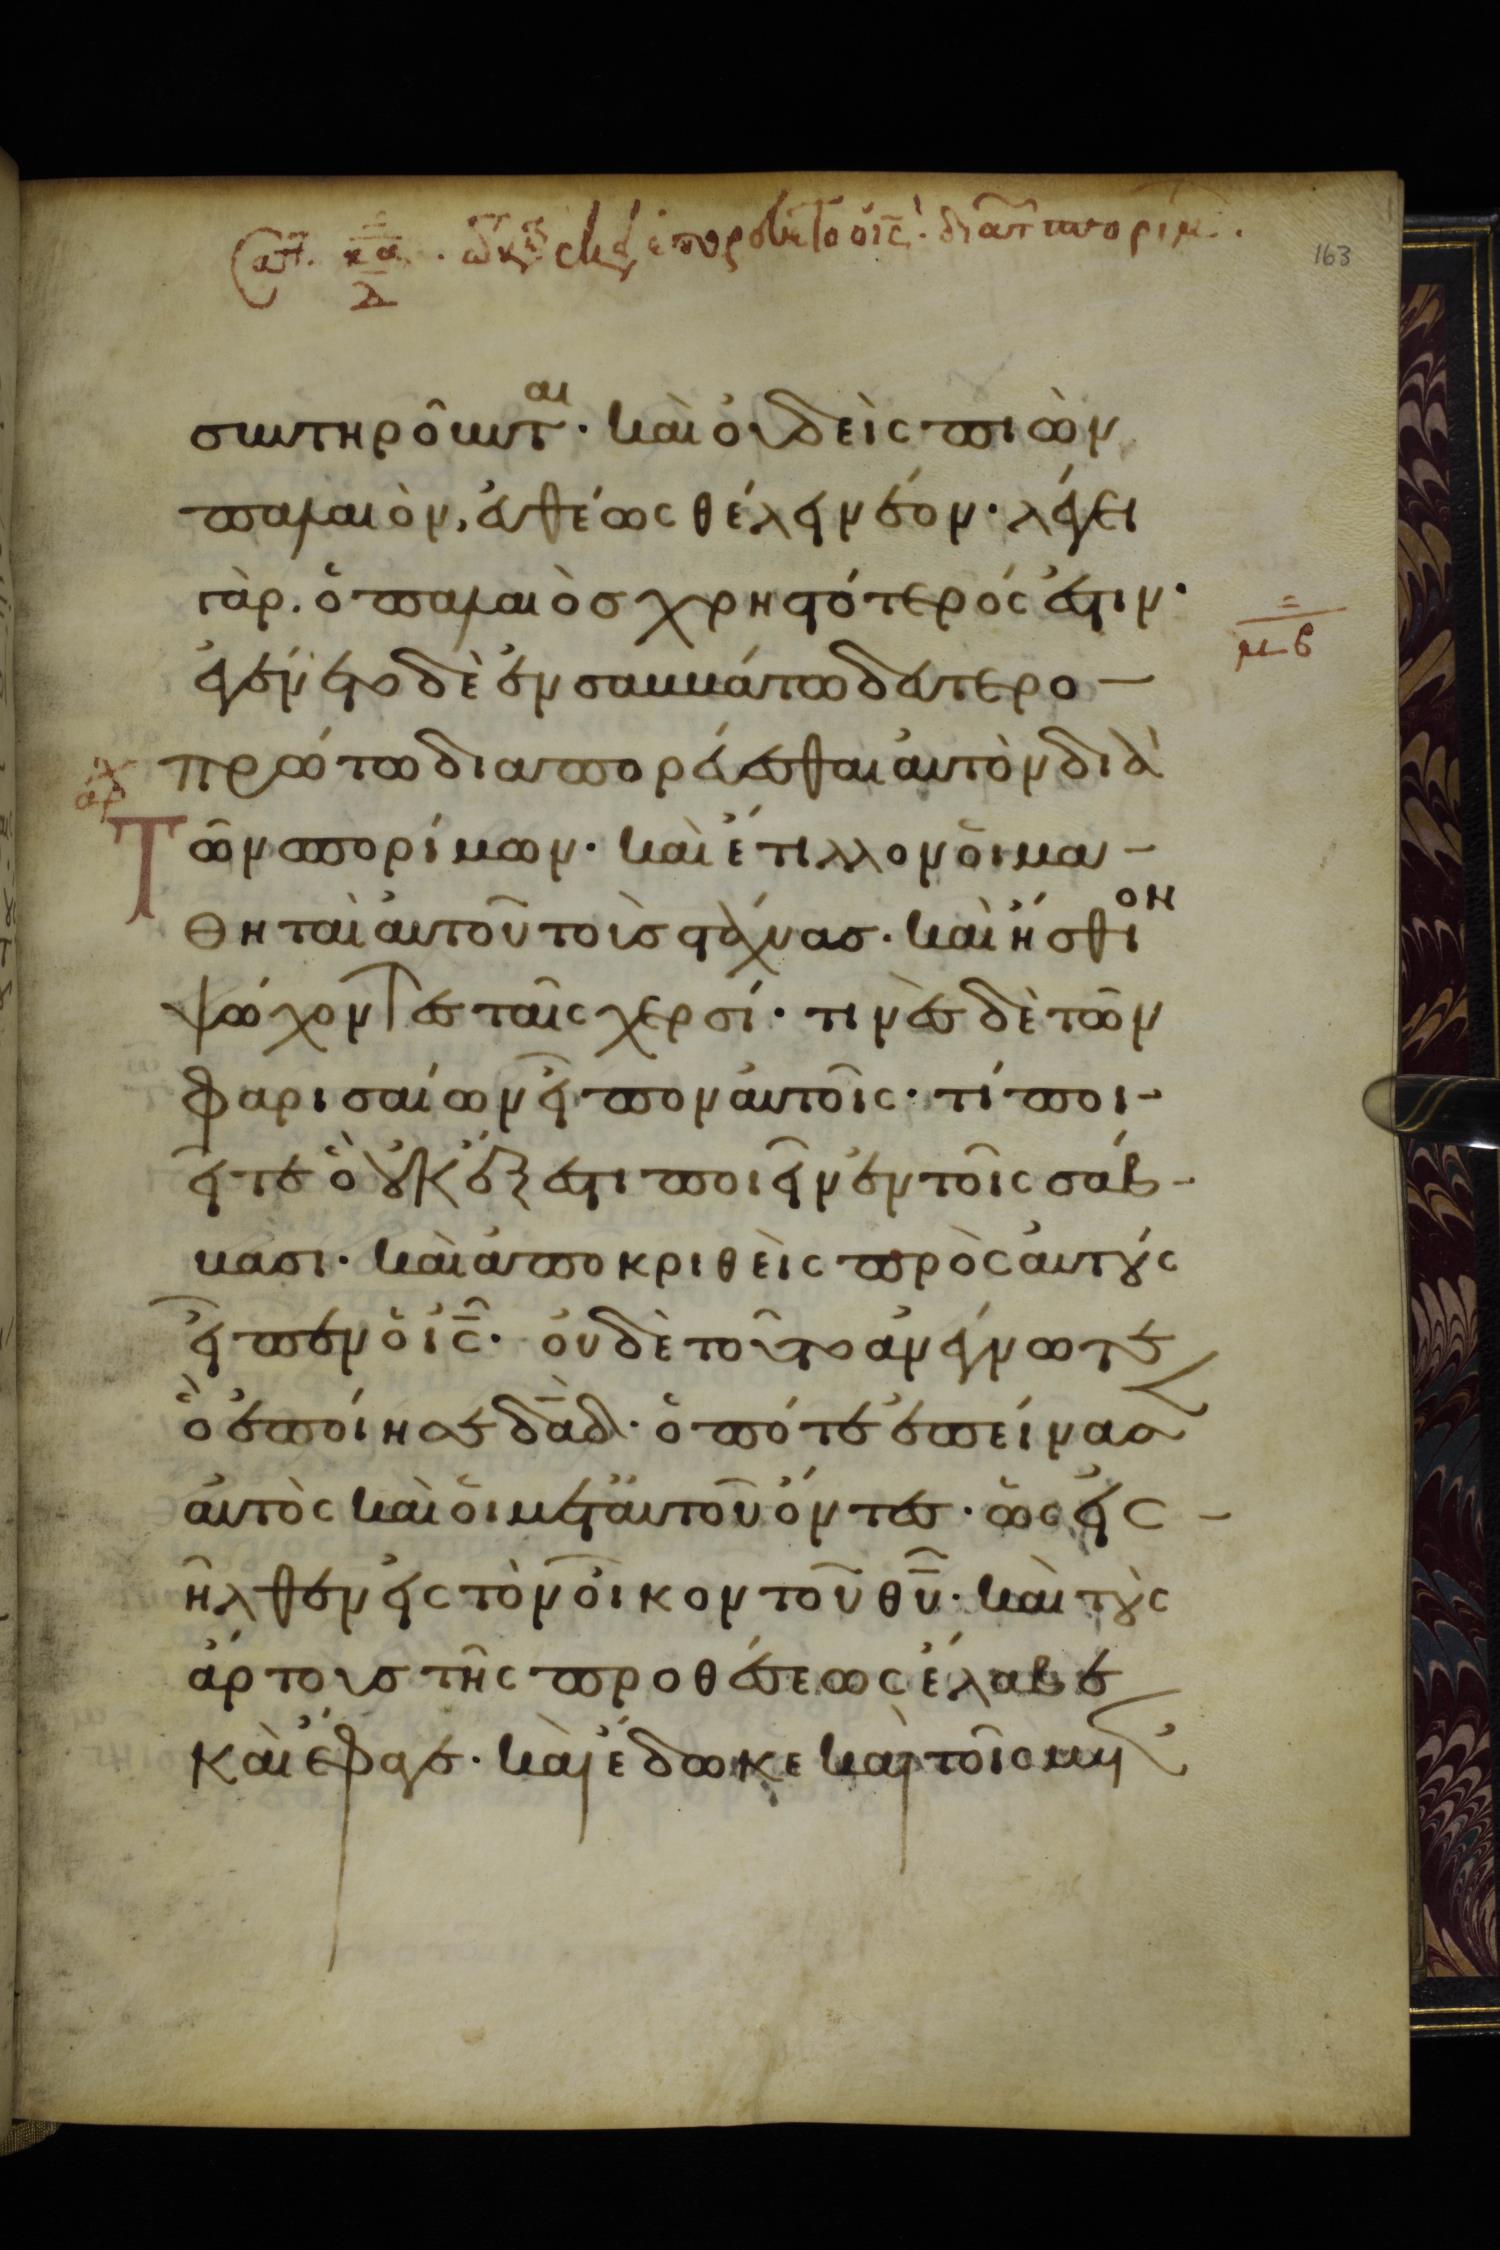 163
συντηροῦνται· καὶ οὐδεὶς πιὼν
παλαιὸν, εὐθέως θέλει νέον· λέγει
γὰρ. ὁ παλαιὸσ χρηστότερός ἐστιν·
ἐγένετο δὲ ἐν σαββάτω δευτερο–
πρώτω διαπορεύεσθαι αὐτὸν διὰ
Τῶν σπορίμων· καὶ ἔτιλλον οἱ μα–
θηταὶ αὐτοῦ τοὺσ στάχυασ· καὶ ἤσθιον
ψώχοντες ταῖς χερσί· τινὲσ δὲ τῶν
φαρισαίων εἶπον αὐτοῖς· τί ποι–
εῖτε ὃ οὐκ ἔξεστι ποιεῖν ἐν τοῖς σάβ–
βασι· καὶ ἀποκριθεὶς πρὸς αὐτούς
εἶπεν ὁ ἰς̄· οὐδὲ τοῦτο ἀνέγνωτε
ὃ ἐποίησε δᾱδ· ὁπότε ἐπείνασεν
αὐτὸς καὶ οἱ μετ αὐτοῦ ὄντεσ· ὡς εἰς–
ῆλθεν εἰς τὸν οἶκον τοῦ θῡ· καὶ τοὺς
ἄρτουσ τῆς προθέσεως ἔλαβε
καὶ ἔφαγε· καὶ ἔδωκε καὶ τοῖς με
μβ